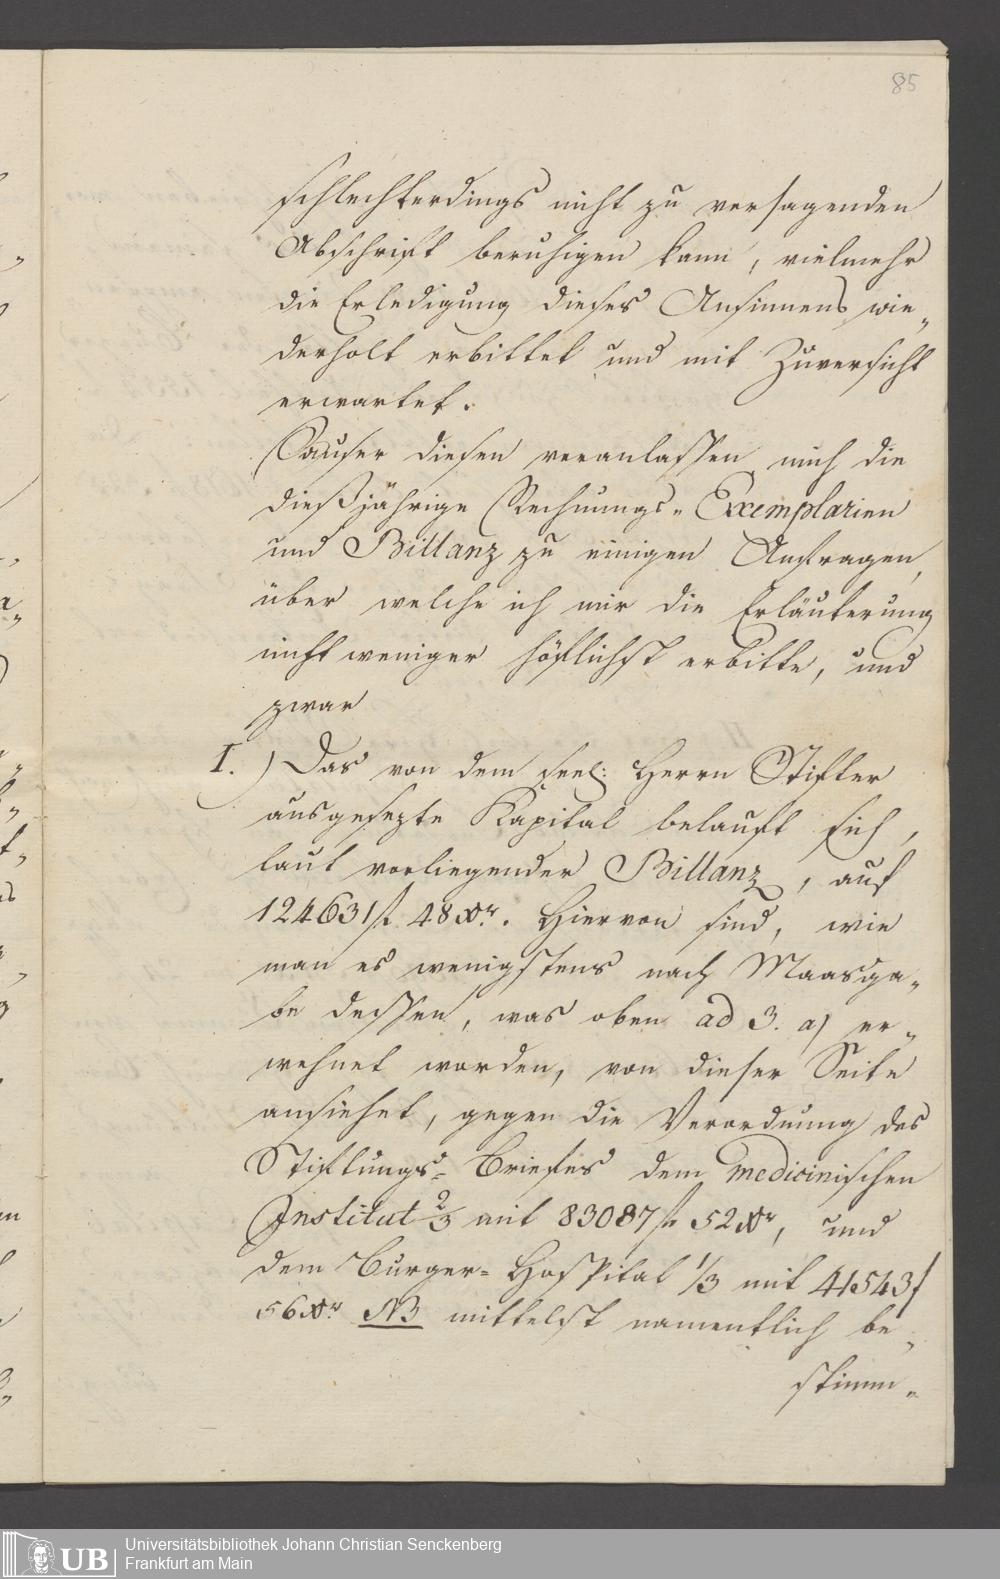 85
schlechterdings nicht zu versagenden
Abschrift beruhigen kann, vielmehr
die Erledigung dieses Ansinnens wie„
derholt erbittet und mit Zuversicht
erwartet.
Causer diesen veranlassen mich die
dießjährige Rechnungs„ Exemplarien
und Billanz zu einigen Anfragen,
über welche ich mir die Erläuterung
nicht weniger höflichst erbitte, und
zwar
I.) Das von dem seel: Herrn Stifter
ausgesezte Kapital belauft sich,
laut vorliegender Billanz, auf
124631 f. 48 Xr. Hiervon sind, wie
man es wenigstens nach Maasga„
be dessen, was oben ad 3. a) er„
wehnet worden, von dieser Seite
ansiehet, gegen die Verordnung des
Stiftungs= Briefes dem medicinischen
Institut 2/3 mit 83087 f. 52 Xr, und
dem Burger= Hospital 1/3 mit 41543 f
56 Xr. NB mittelst namentlich be„
stimm„
UB Universitätsbibliothek Johann Christian Senckenberg
Frankfurt am Main